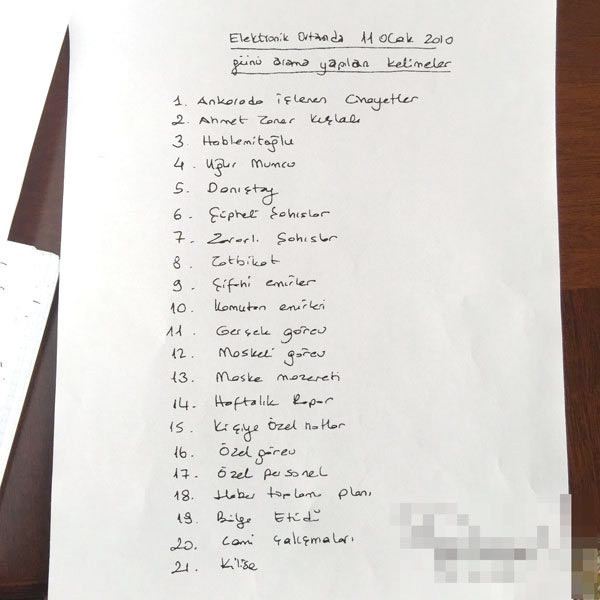 Elektronik Ortamda 11 Ocak 2010
günü arama yapılan kelimeler
1. Ankarada işlenen Cinayetler
2. Ahmet Taner Kışlalı
3 Hablemitoğlu
4. Uğur Mumcu
5. Danıştay
6. Şüpheli Şahıslar
7. Zararlı Şahıslar
8 Tatbikat
9. Şifahi emirler
10. Komutan emirleri
11. Gerçek görev
12. Maskeli görev
13. Maske mazereti
14. Haftalık Rapor
15. Kişiye Özel notlar
16. Özel görev
17. Özel personel
18. Haber toplama planı
19. Bölge Etüdü
20. Cami Çalışmaları
21. Kilise